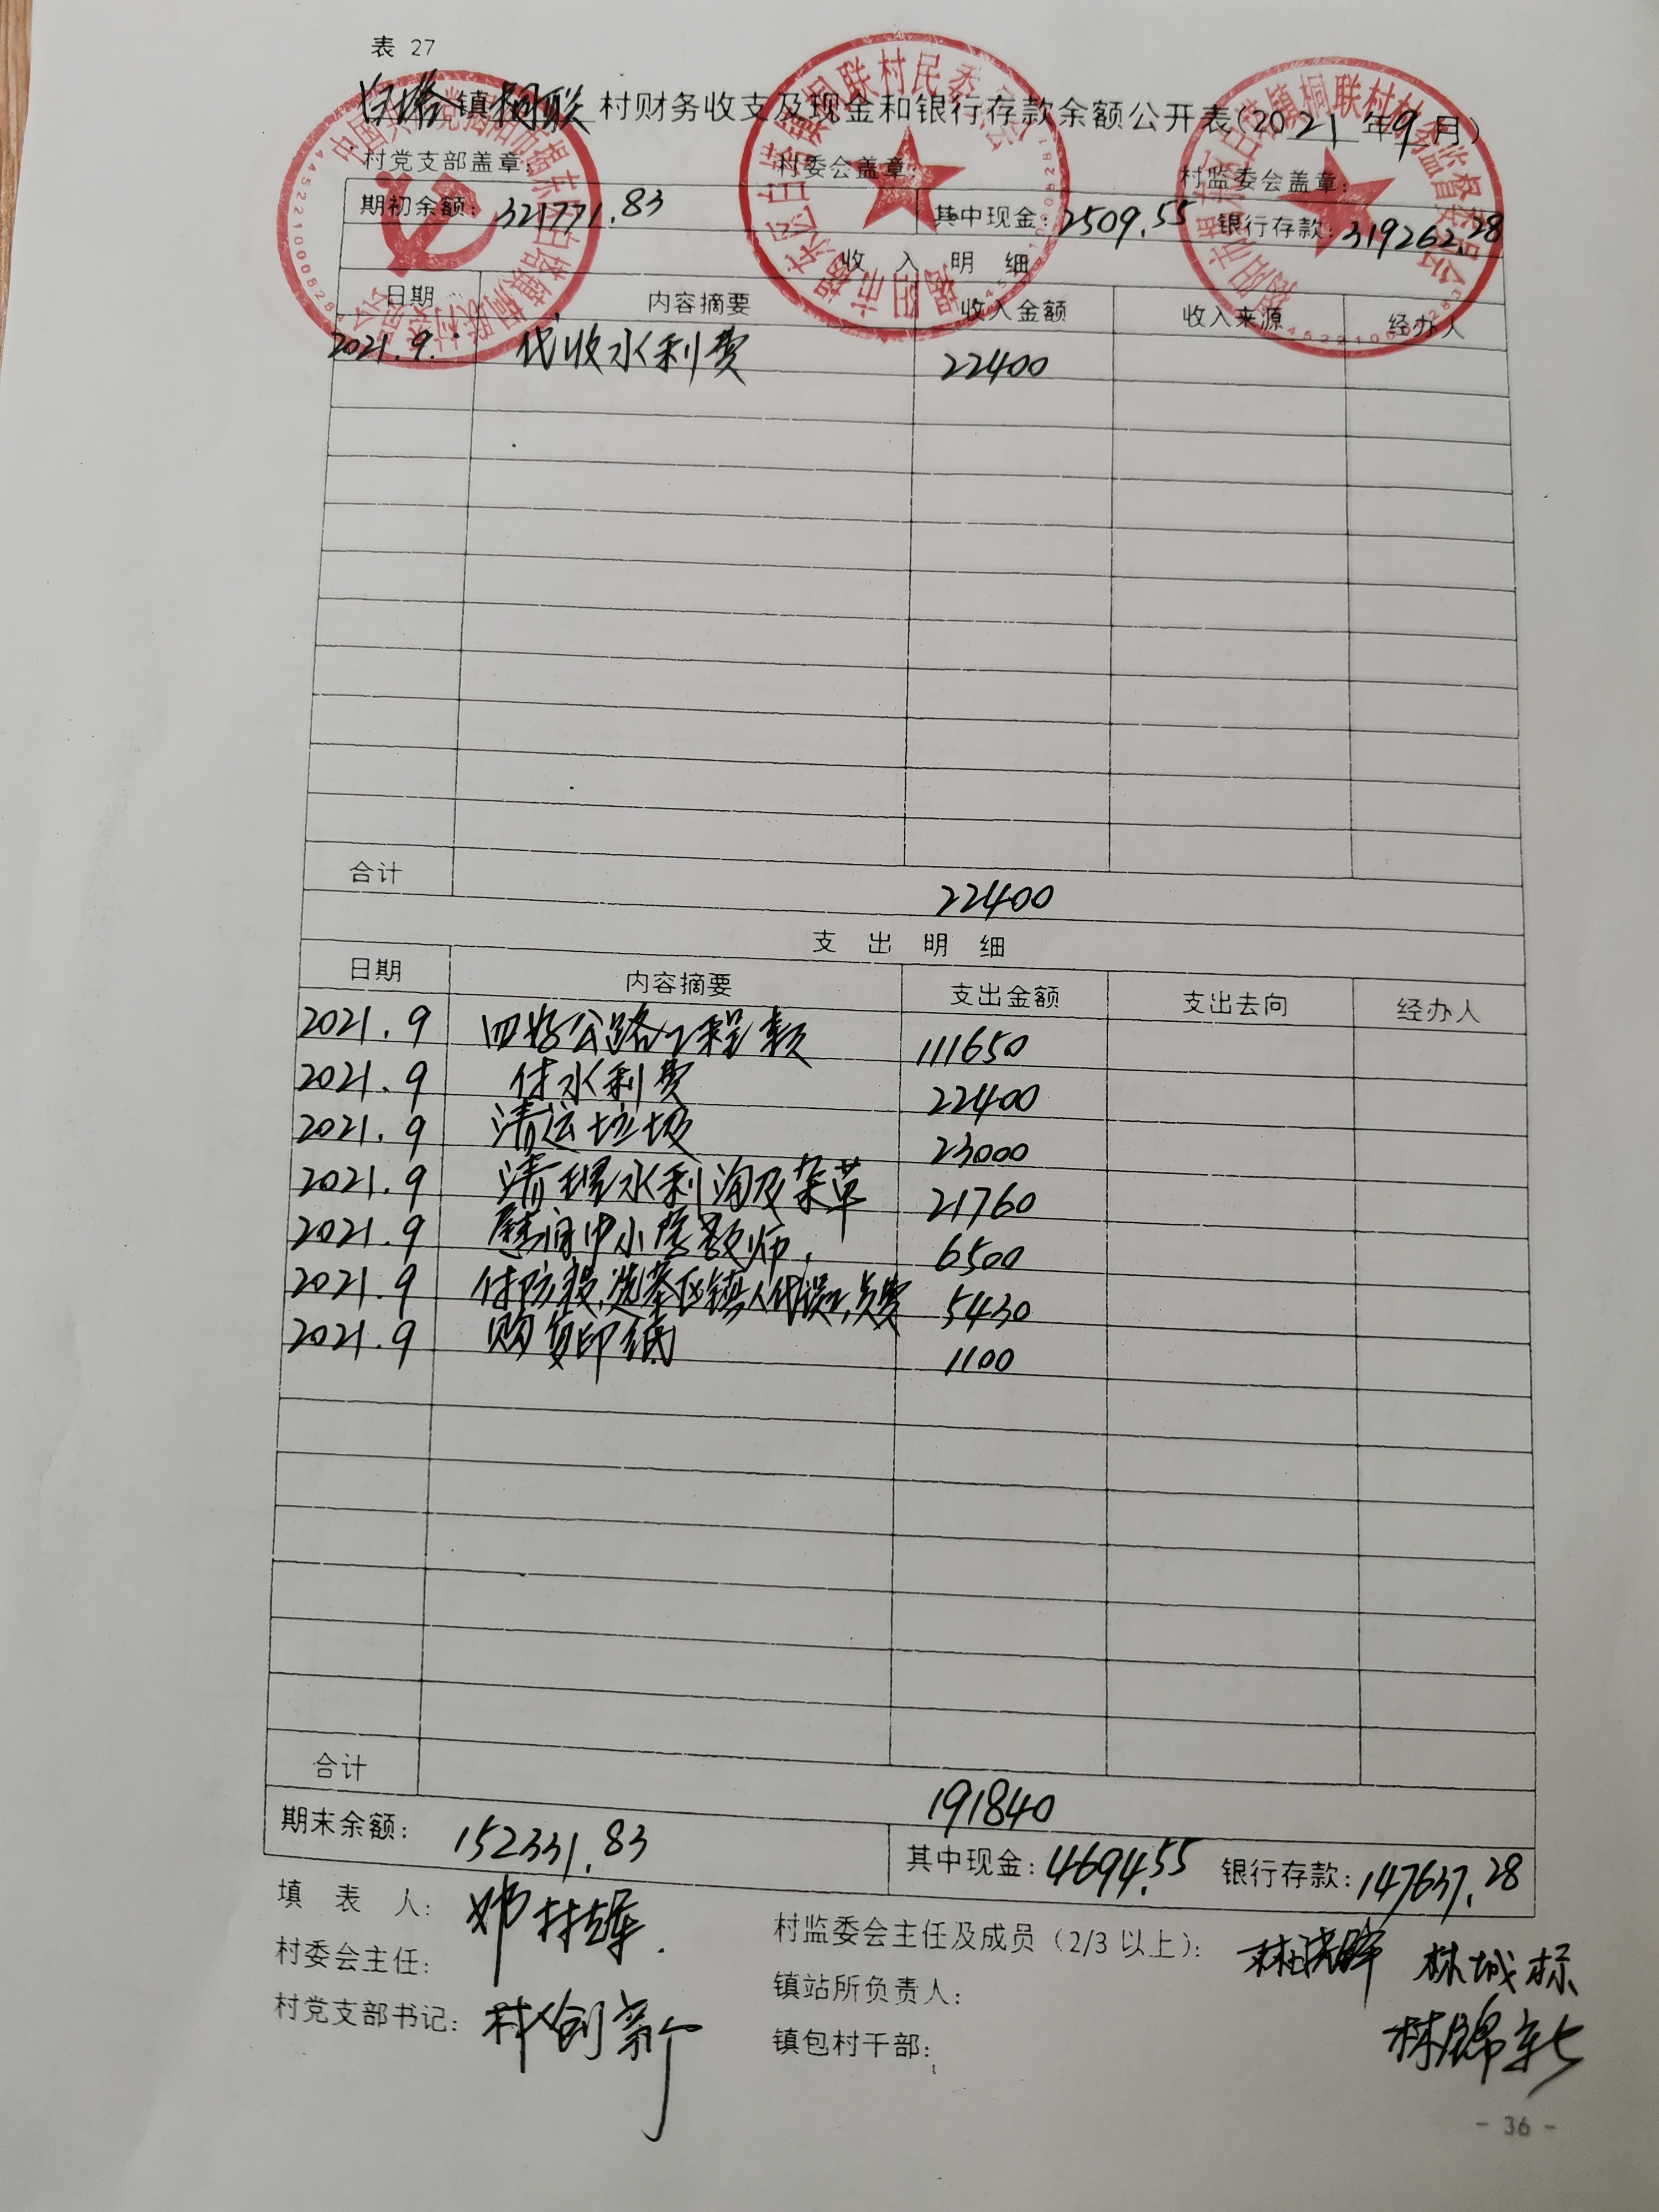 表 27
白塔镇桐联村财务收支及现金和银行存款余额公开表(2021年9月)
村党支部盖章: 村委会盖章: 村监委会盖章:
期初余额: 321771.83 其中现金: 2509.55 银行存款: 319262.28
收 入 明 细
日期 内容摘要 收入金额 收入来源 经办人
2021.9. 代收水利费 22400
合计 22400
支 出 明 细
日期 内容摘要 支出金额 支出去向 经办人
2021.9 四好公路工程款 111650
2021.9 付水利费 22400
2021.9 清运垃圾 23000
2021.9 清理水利沟及杂草 21760
2021.9 慰问中小学教师, 6500
2021.9 付防疫,选举区镇人代误工,员费 5430
2021.9 购复印纸 1100
合计 191840
期末余额: 152331.83 其中现金: 4694.55 银行存款: 147637.28
填 表 人:
村委会主任:
村党支部书记: 林创新
村监委会主任及成员(2/3 以上): 林城标
镇站所负责人:
镇包村干部:
- 36 -